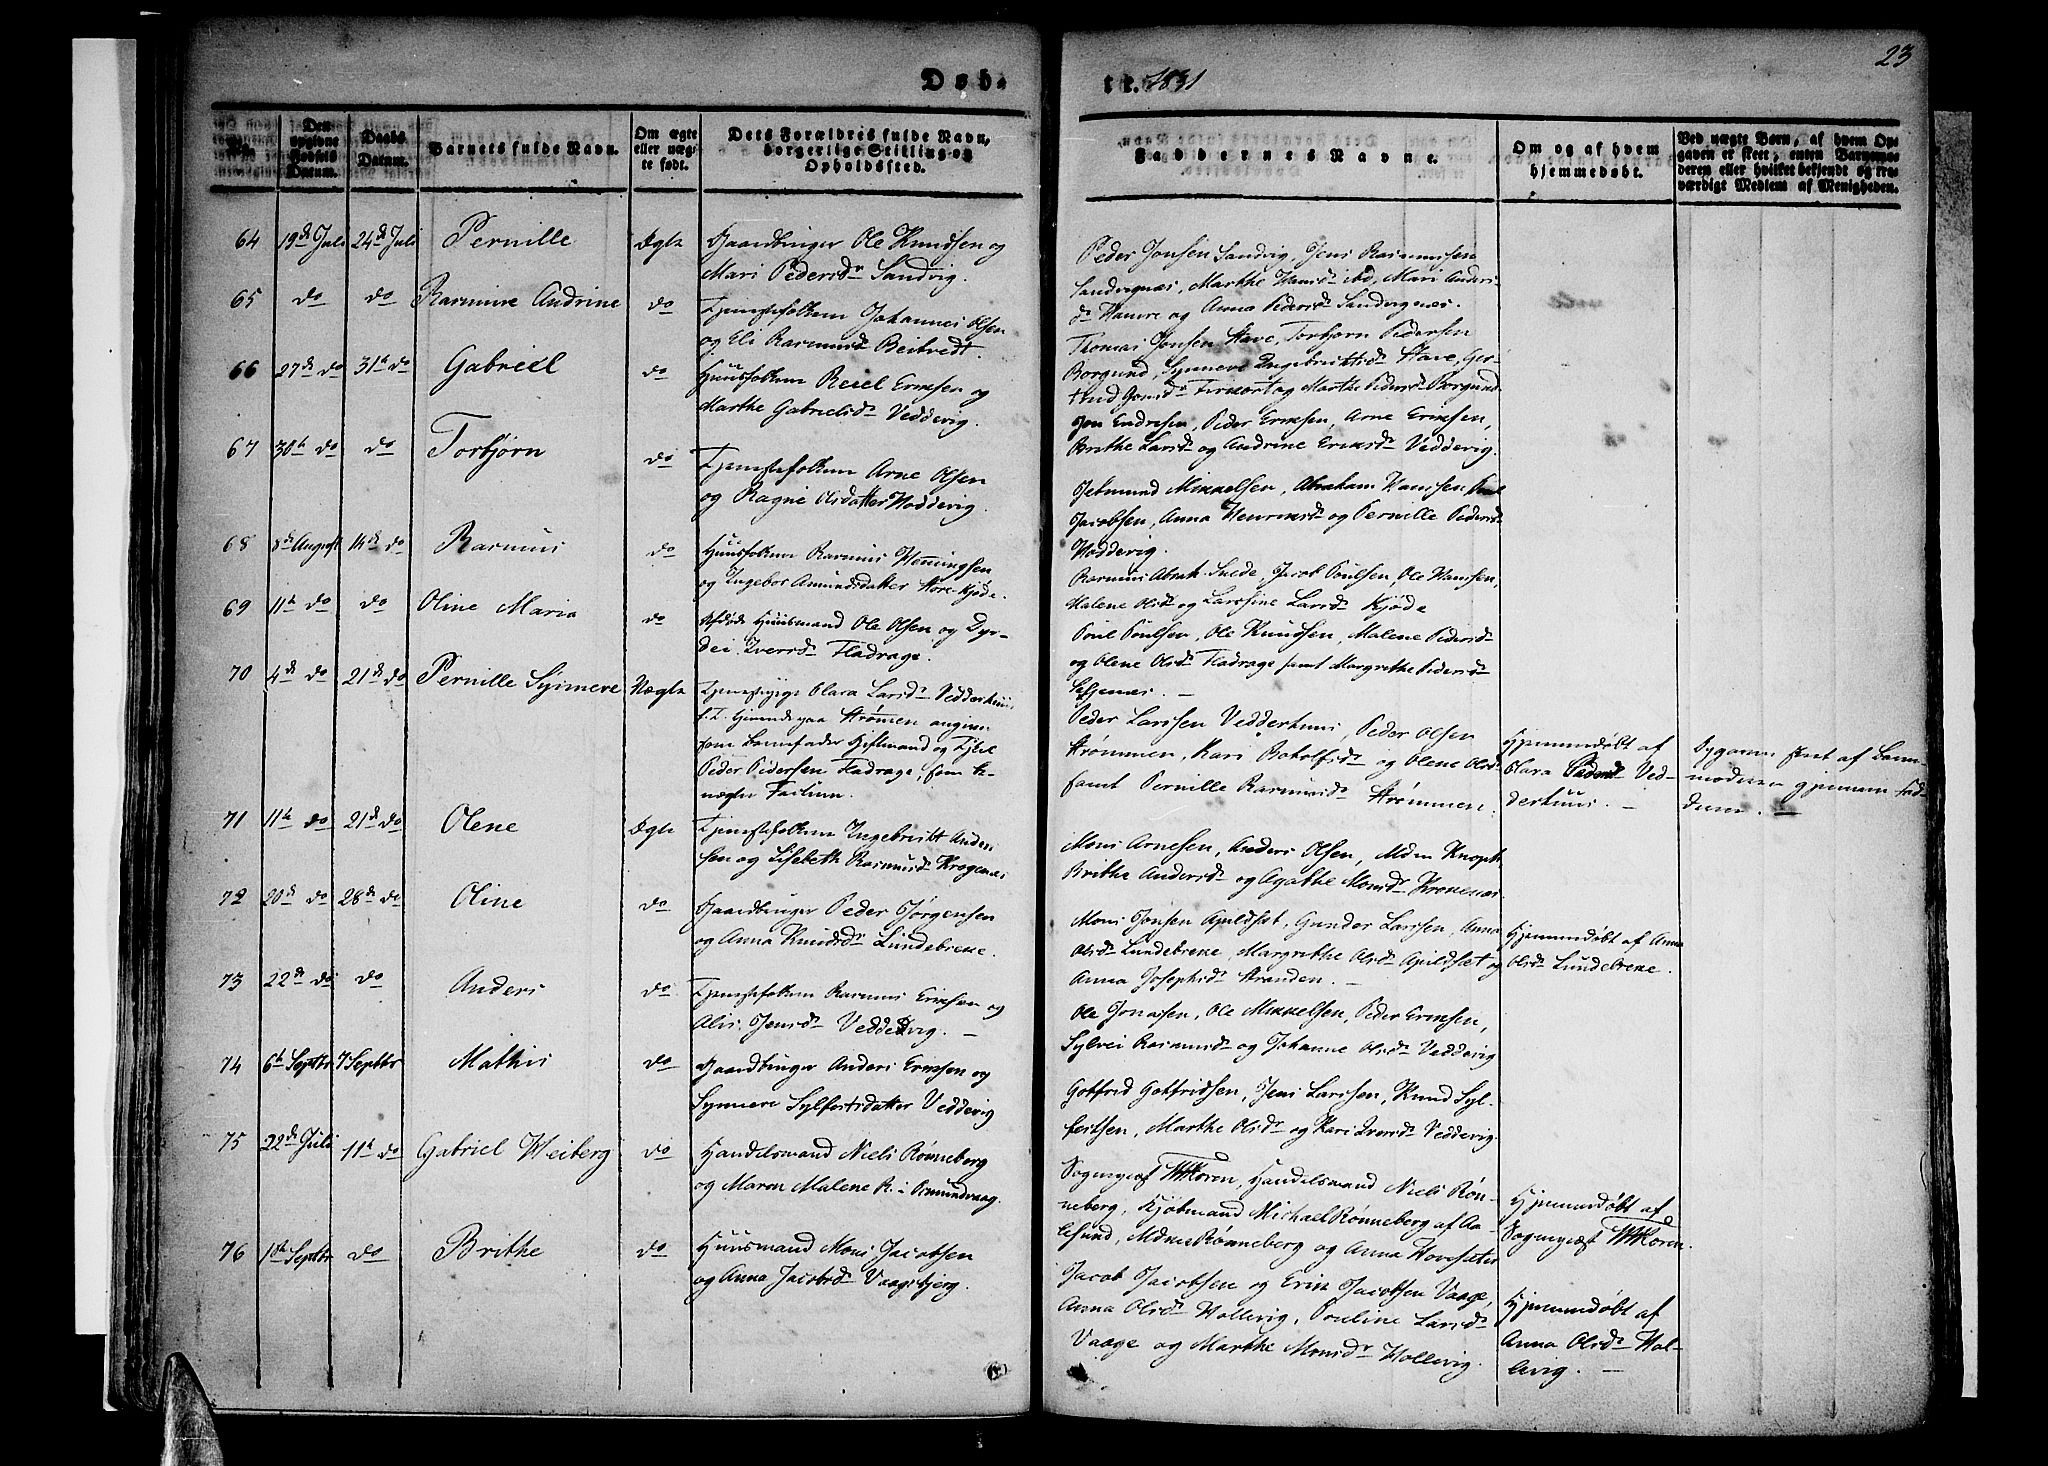 23
Døb-
te. 1831
No.
Den opgivne Fødsels Datum.
Daabs Datum.
Barnets fulde Navn.
Om ægte eller uægte født.
Dets Forældres fulde Navn, borgerlige Stilling og Opholdssted.
Faddernes Navne.
Om og af hvem hjemmedøbt.
Ved uægte Børn, af hvem Opgaven er skeet, enten Barnemoderen eller hvilket bekjendt og troværdigt Medlem af Menigheden.
64 19de Juli 24de Juli Pernille Ægte
Gaardbruger Ole Knudsen og
Mari Pedersdr Sandvig.
Peder Jonsen Sandvig, Jens Rasmussen
Sandvignæs, Marthe Hansd ibd, Mari Anders-
dr Hamre og Anna Pedersdr Sandvignæs.
65 do do Rasmine Andrine do
Tjenestefolkene Johannes Olsen
og Eli Rasmusdr Beitvedt.
Thomas Jonsen Have, Torbjørn Pedersen
Borgund, Synneve Ingebrigtsdr Have, Ger-
trud Jonsdr og Marthe Pedersdr Borgund
66 27de do 31te do Gabriel do
Huusfolkene Resel Ericksen og
Marthe Gabrielsdr Veddevig.
Jon Endresen, Peder Ericksen, Arne Ericksen,
Brithe Larsdr og Andrine Ericksdr Veddevig.
67 30te do do Torbjørn do
Tjenestefolkene Arne Olsen
og Ragne Olsdatter Voddevig.
Jetmund Mikkelsen, Abraham Hansen Poul
Jacobsen, Anna Henricksdr og Pernille Pedersdr
Voddevig.
68 8de August 14de do Rasmus do
Huusfolkene Rasmus Henningsen
og Ingebor Amundsdatter Store-Kjøde.
Rasmus Abrah. Sulde, Jacob Poulsen, Ole Hansen,
Malene Olsdr og Larsine Larsdr Kjøde
69 11te do do Oline Maria do
Afdøde Huusmand Ole Olsen og Dyr-
dei Iversdr Fladrage.
Poul Poulsen, Ole Knudsen, Malene Pedersdr
og Olene Olsdr Fladrage samt Margrethe Pedersdr
70 4de do 21de do Pernille Synneve Uægte
Tjenestepige Clara Larsdr Vedderhuus
f. T. tjenende paa Strømmen angiven
som Barnefader Giftmand og
Peder Pedersen Fladrage, som be-
nægter Factum.
Peder Larssen Vedderhuus, Peder Olsen
Strømmen, Kari Botolfsdr og Olene Olsdr
samt Pernille Rasmusdr Strømmen.
Hjemmedøbt af
Clara Pedersdr Ved-
derhuus. —
Opgaven skeet af Barne-
moderen gjennem Fad-
derne. —
71 11te do 21de do Olene Ægte
Tjenestefolkene Ingebrigt Anders
sen og Lisebeth Rasmusdr Krogenæs
Mons Arnesen, Anders Olsen, Mdm Knoph
Brithe Andersdr og Agathe Monsdr Krokenæs.
72 20de do 28de do Oline do
Gaardbruger Peder Jørgensen
og Anna Knudsdr Lundebrekke.
Mons Jonsen Apuldset, Gunder Larssen, Anna
Olsdr Lundebrekke, Margrethe Olsdr Apuldset og
Anna Josephsdr Stranden. —
Hjemmedøbt af Anna
Olsdr Lundebrekke.
73 22de do do Anders do
Tjenestefolkene Rasmus Ericksen og
Alis Jensdr Veddevig. —
Ole Jonassen, Ole Mikkelsen, Peder Ericksen,
Sylvei Rasmusdr og Johanne Olsdr Veddevig
74 6te Septbr 7 Septbr Mathis do
Gaardbruger Anders Ericksen og
Synneve Sylfestsdatter Veddevig
Gotfrid Gotfridsen, Jens Larssen, Knud Syl-
festsen, Marthe Olsdr og Kari Iversdr Veddevig.
75 22de Juli 11te do Gabriel Heiberg do
Handelsmand Niels Rønneberg
og Maren Malene R. i Osmundvaag.
Sognepræst WKoren, Handelsmand Niels Røn-
neberg, Kjøbmand Michael Rønneberg af Aa-
lesund, Mdme Rønneberg og Anna Hovsæter
Hjemmedøbt af
Sognepræst WKoren.
76 1ste Septbr do Brithe do
Huusmand Mons Jacobsen
og Anna Jacobsdr Vaagsbjerg.
Jacob Jacobsen og Erik Jacobsen Vaage,
Anna Olsdr Hollevig, Pouline Larsdr
Vaage og Marthe Monsdr Hollevig.
Hjemmedøbt af
Anna Olsdr Hol-
levig. —